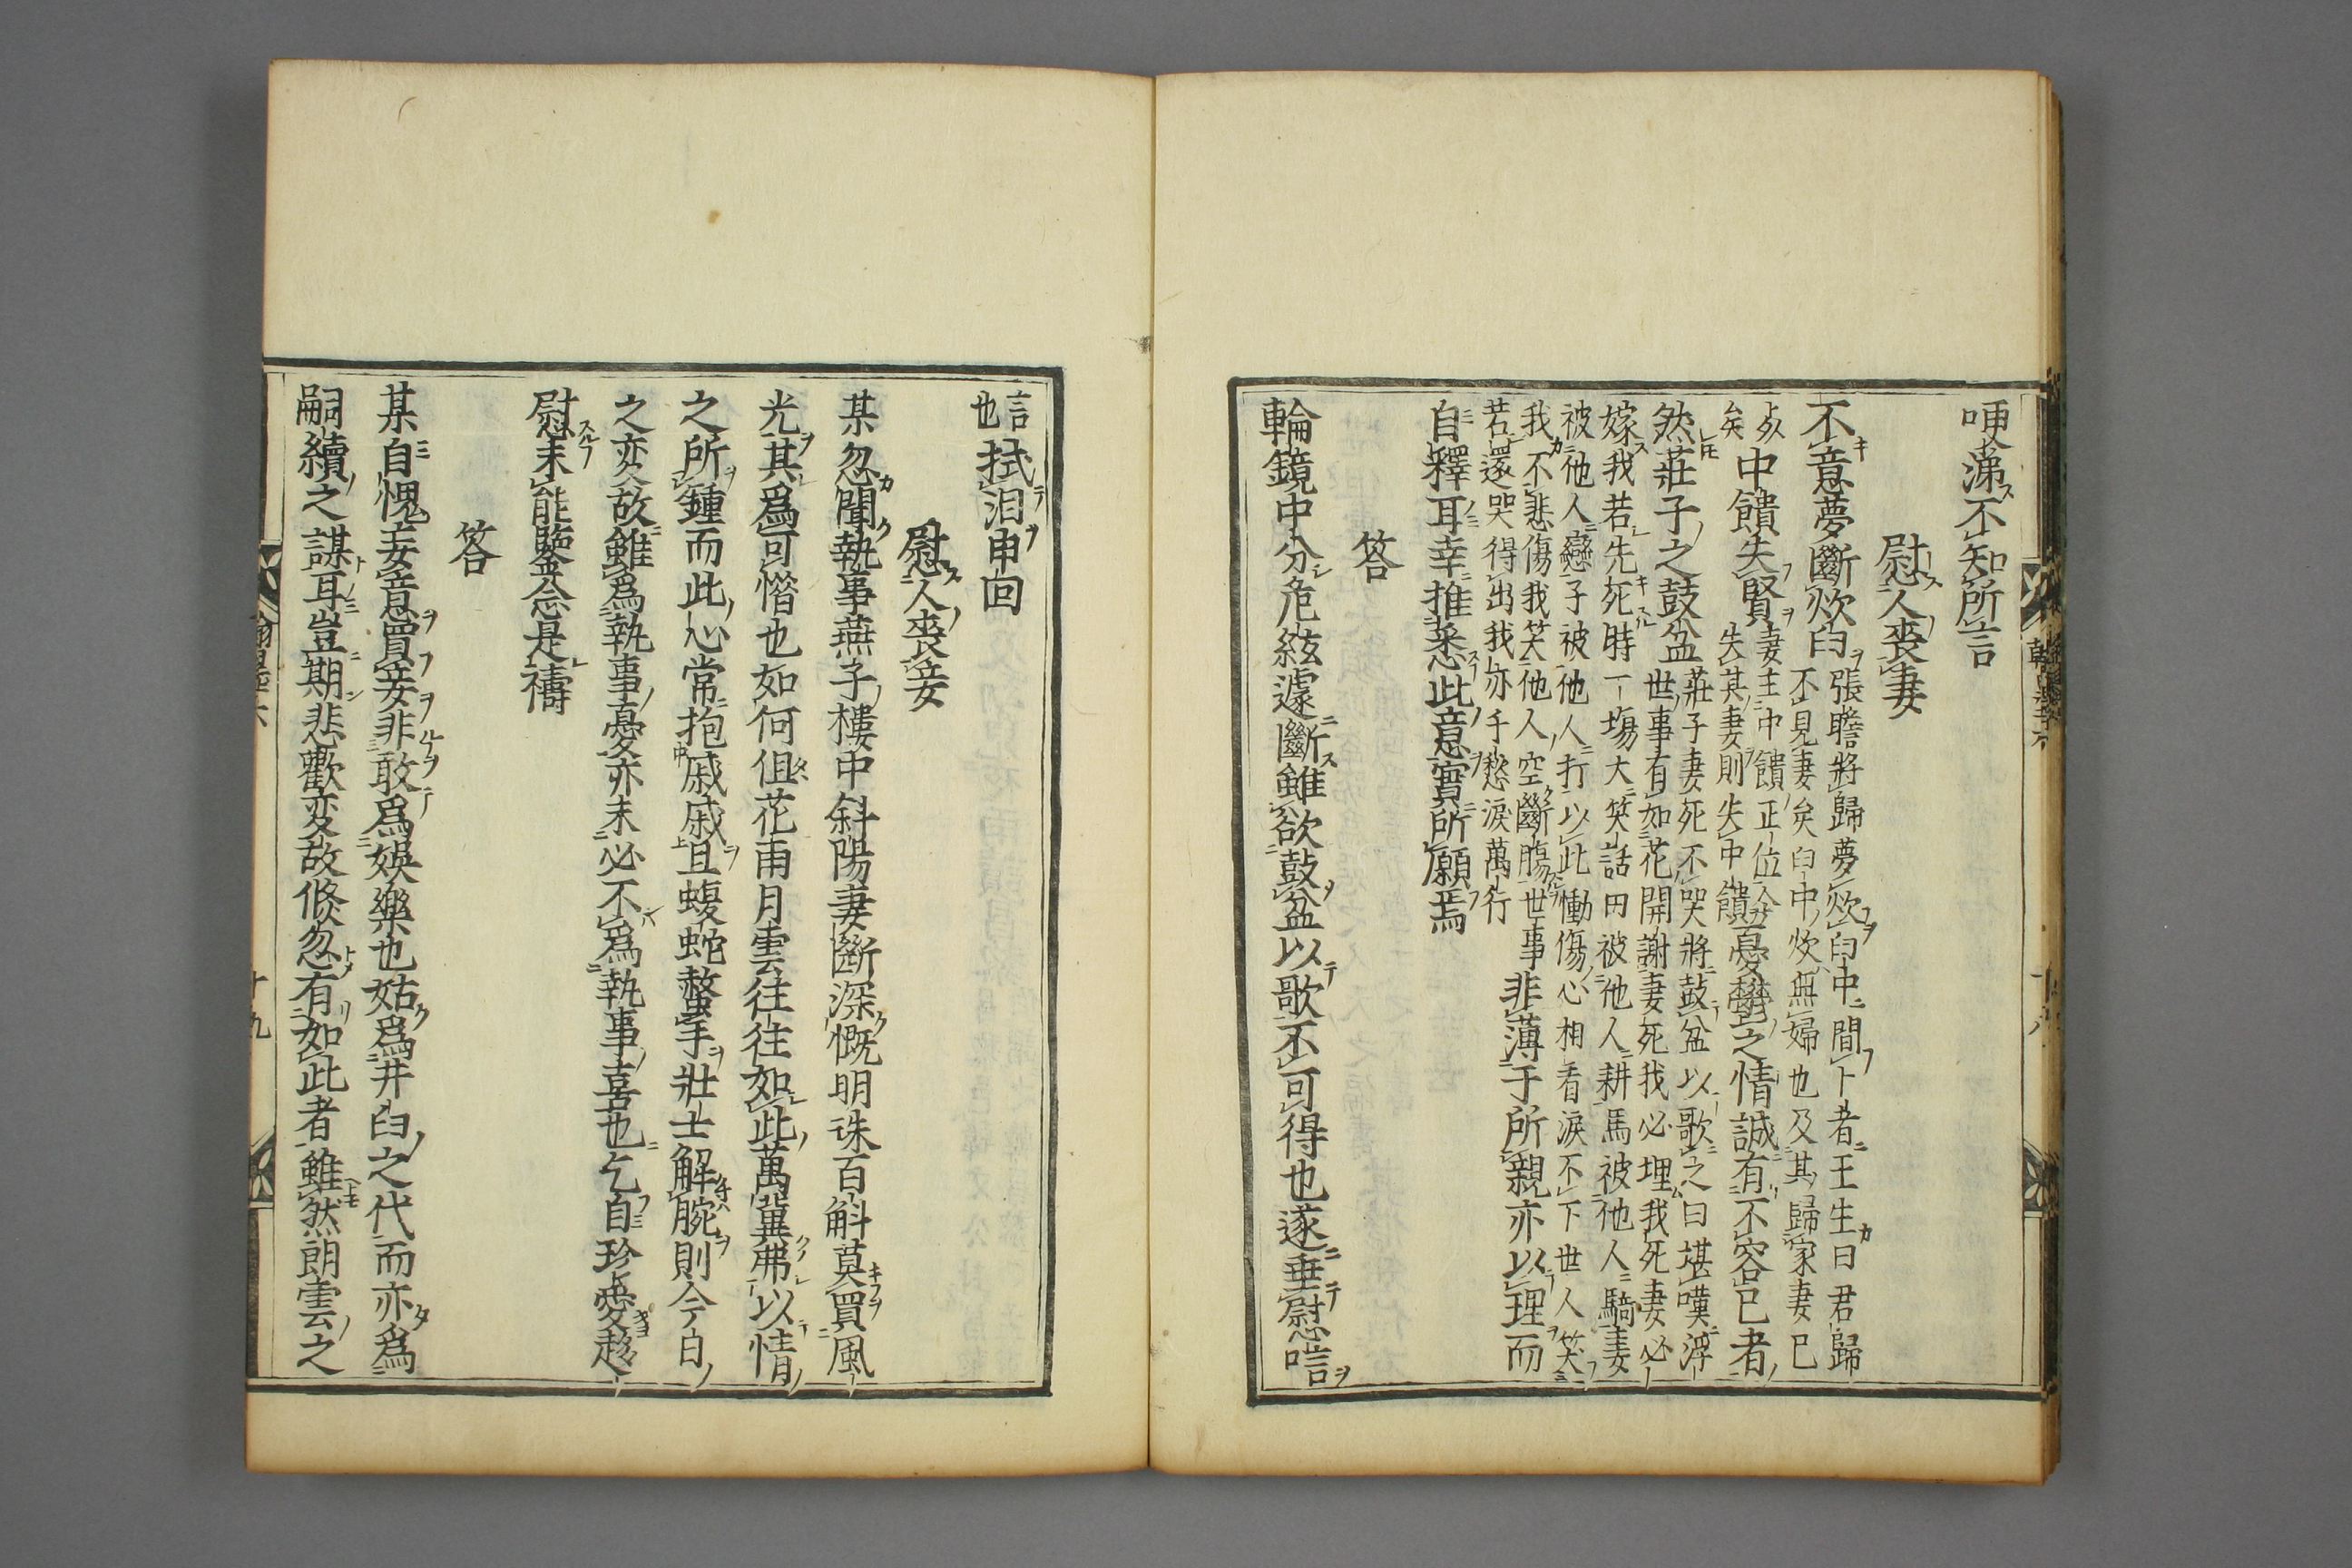 哽涕不知所言
慰人喪妻
不意夢斷炊臼張瞻將歸夢炊臼中間卜者王生曰君歸
不見妻矣臼中炊無婦也及其歸家妻已
歿
矣
中饋失賢妻主中饋正位
失其妻則失中饋憂鬱之情誠有不容已者
然莊子之鼓盆莊子妻死不哭將鼓盆以歌之曰堪嘆浮
世事有如花開謝妻死我必埋我死妻必
嫁我若先死時一塲大笑話田被他人耕馬被他人騎妻
被他人戀子被他人打以此慟傷心相看淚不下世人笑
我不悲傷我笑他人空斷膓世事
若還哭得出我亦千愁淚萬行
非薄于所親亦以理而
自釋耳幸推悉此意實所願焉
答
輪鏡中分危絃遽斷雖欲鼓盆以歌不可得也遂垂慰唁
翰墨 六
言
也
拭淚申回
慰人喪妾
某忽聞執事燕子樓中斜陽妻斷深慨明珠百斛莫買風
光其爲可憯也如何但花雨月雲往往如此萬冀弗以情
之所鍾而此心常抱戚戚且蝮蛇螫手壯士解腕則今白
之変故雖爲執事憂亦未必不爲執事喜也乞自珍愛趍
慰未能鑒念是禱
答
某自愧妄意買妾非敢爲娛樂也姑爲井臼之代而亦爲
嗣續之謀耳豈期悲歡変故倐忽有如此者雖然朗雲之
十九